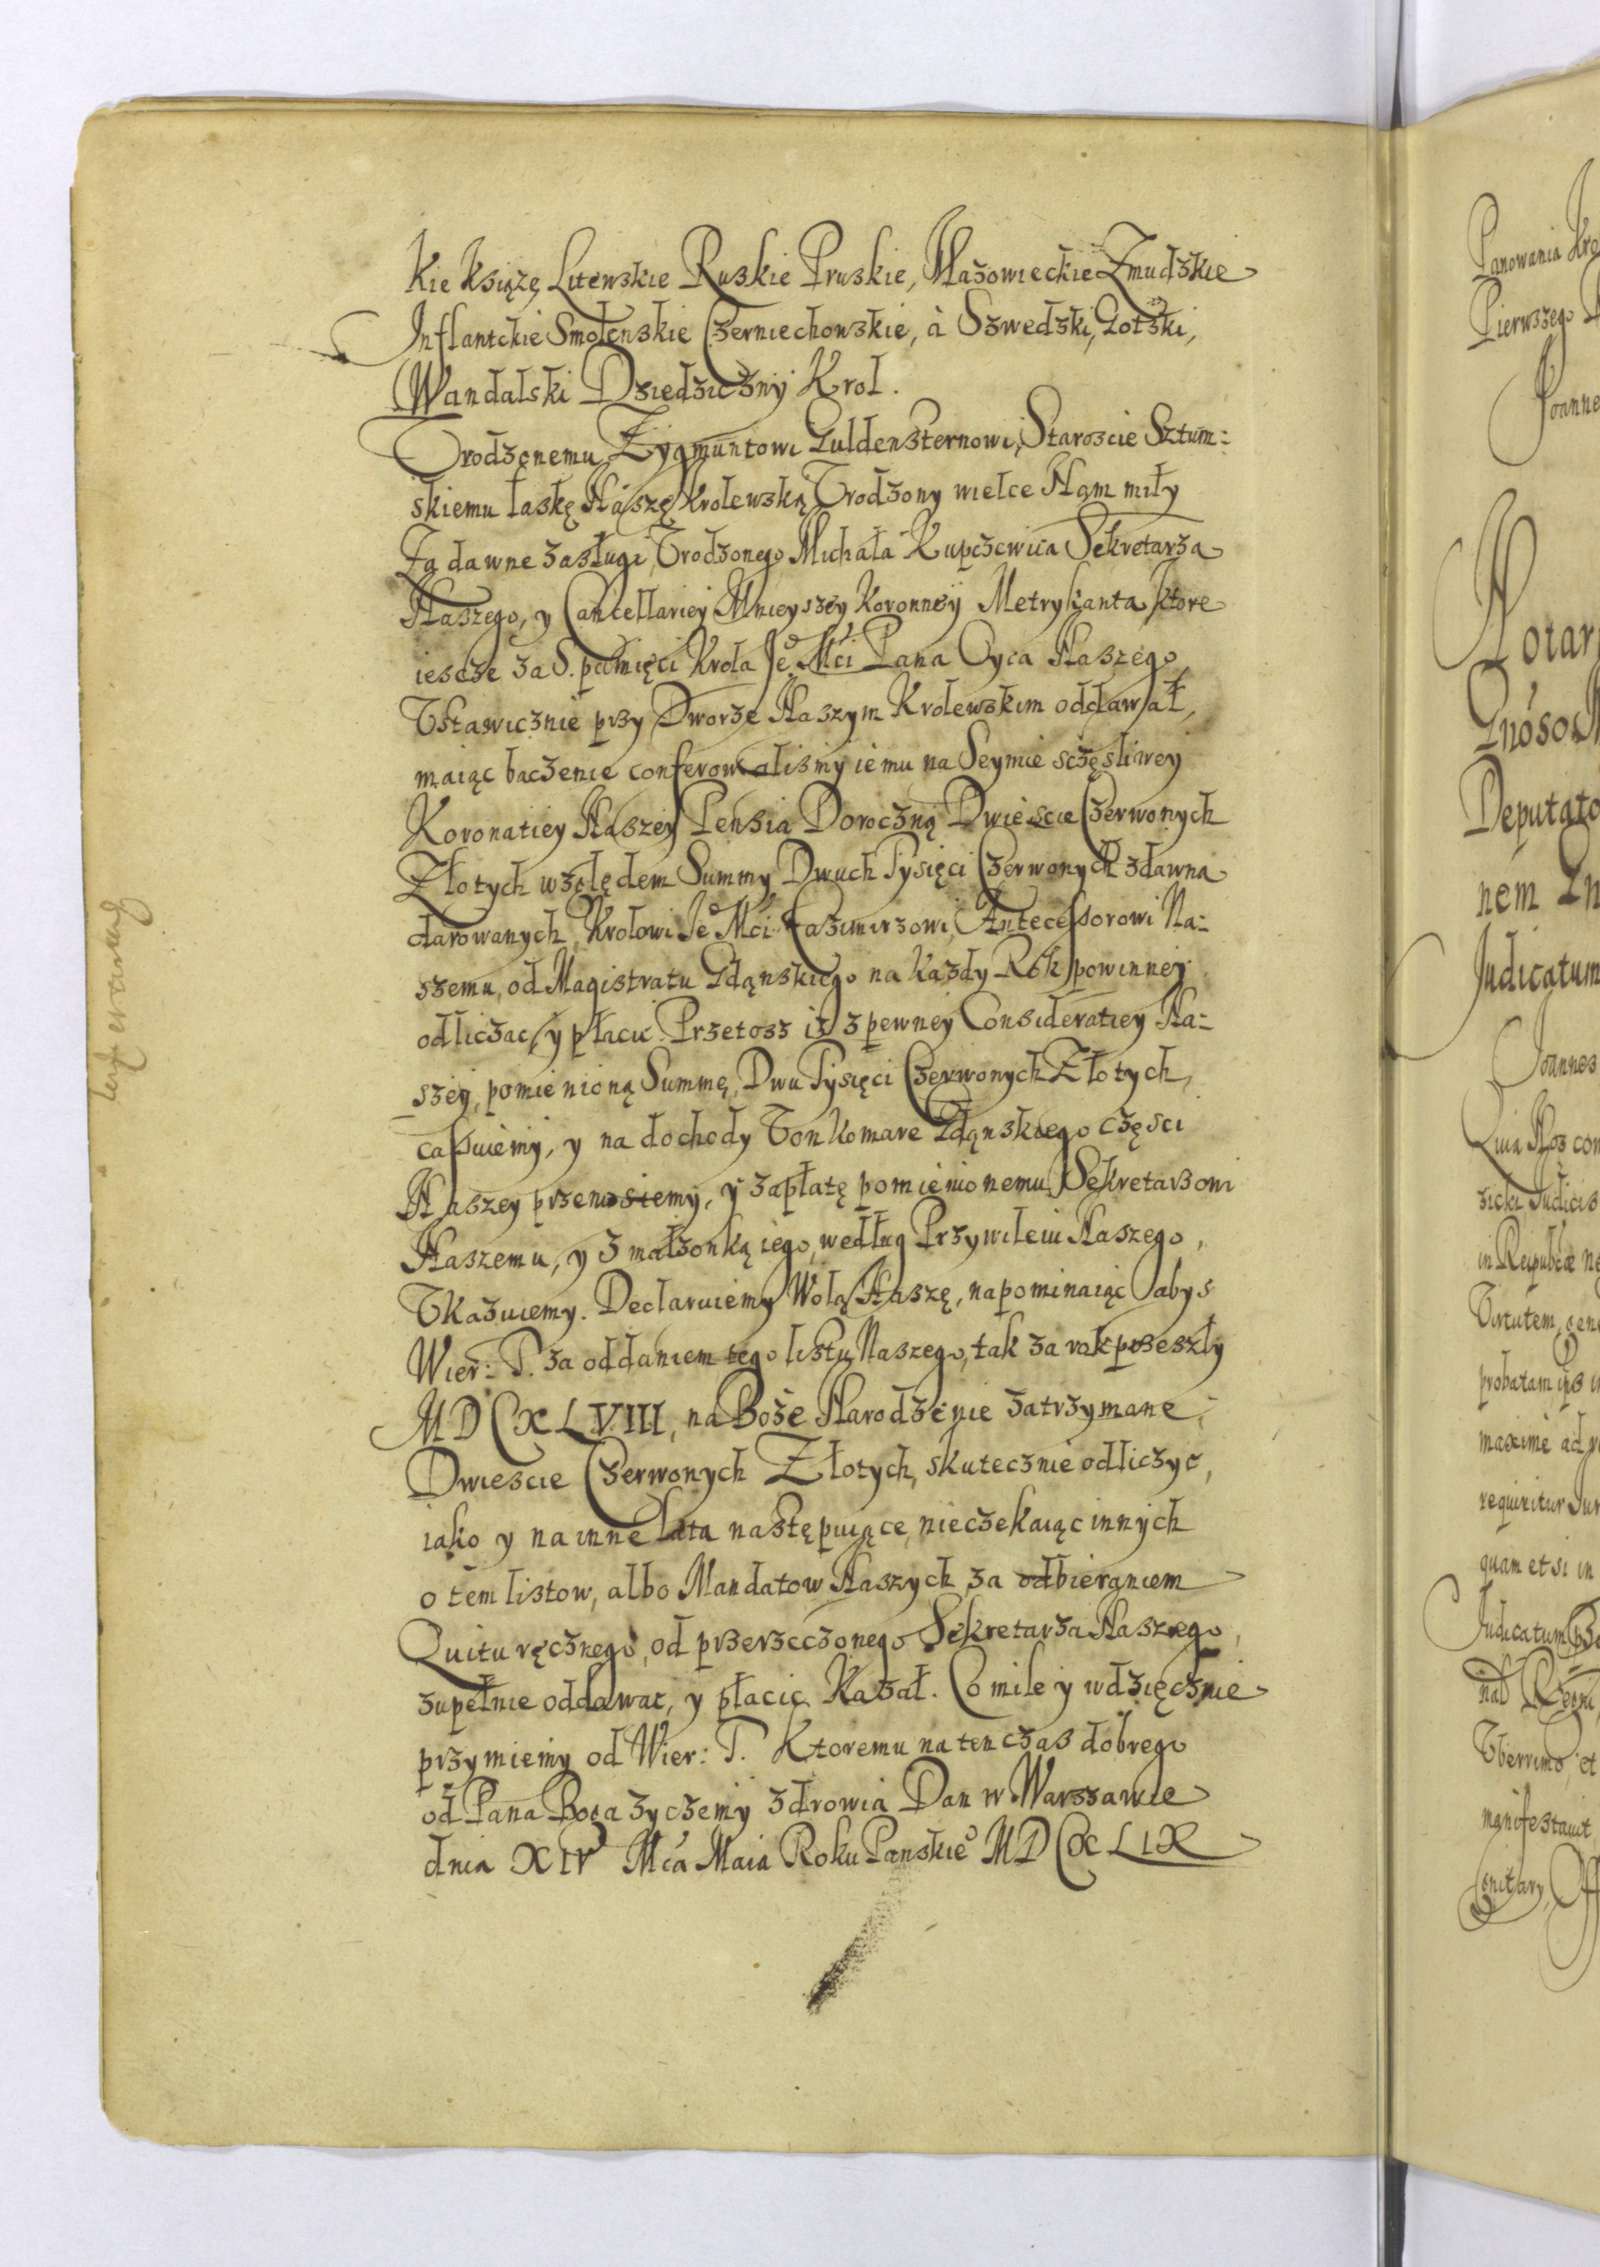 Kie Książę Litewskie Ruskie Pruskie, Mazowieckie Zmudzkie
Inflantckie Smolenskie Czerniechowskie, à Szwedzki, Gotzki,
Wandalski Dziedziczny Krol.
Urodzonemu Zygmuntowi Guldensternowi, Staroscie Sztum:
skiemu łaskę Naszę Krolewską Urodzony wielce Nam miły
Za dawne zasługi Urodzonego Michała Kupczewica Sekretarza
Naszego, y Cancellariey Mnieyszey Koronney Metrykanta, ktore
iescze za S. pamięci Krola Je° Mći Pana Oyca Naszego,
Ustawicznie przy Dworze Naszym Krolewskim oddawał,
maiąc baczenie conferowalismy iemu na Seymie sczęsliwey
Koronatiey Naszey Pensia Doroczną Dwiescie Czerwonych
Złotych względem Summy Dwuch Tysięci Czerwonych zdawna
darowanych, Krolowi Je° Mći Kazimirzowi, Antecessorowi Na:
szemu, od Magistratu Gdąnskiego na każdy Rok powinney
odliczac, y płacic. Przetosz iz z pewney Consideratiey Na:
szey, pomienioną Summę, Dwu Tysięci Czerwonych Złotych,
cassuiemy, y na dochody Fonkomare Gdąnskiego części
Naszey przenosiemy, y zapłatę pomienionemu Sekretarzowi
Naszemu, y z małzonką iego, według Przywileiu Naszego,
Ukazuiemy. Declaruiemy Wolą Naszę, napominaiąc abys
Wier: T. za oddaniem tego listu Naszego, tak za rok przeszły
MDCXLVIII, na Boże Narodzenie zatrzymane,
Dwiescie Czerwonych Złotych, skutecznie odliczyc,
iako y na inne lata następuiące, nieczekaiąc innych
o tem listow, albo Mandatow Naszych, za odbieraniem
Quitu ręcznego, od przerzeczonego Sekretarza Naszego,
zupełnie oddawac, y płacic Kazał. Co mile y wdzięcznie
przymiemy od Wier: T. Ktoremu na ten czas dobrego
od Pana Boga zyczemy zdrowia Dan w Warszawie
dnia XIV Mća Maia Roku Panskie° MDCXLIX
Panowania
Pierwszego
Joanne
Deputato
nem
Judicatum
Joannes
Quia Nos con
Judicis
in Reipublcæ
probatam
maxime ad
requiritur Jur
quam et si in
Judicatum
manifestavit